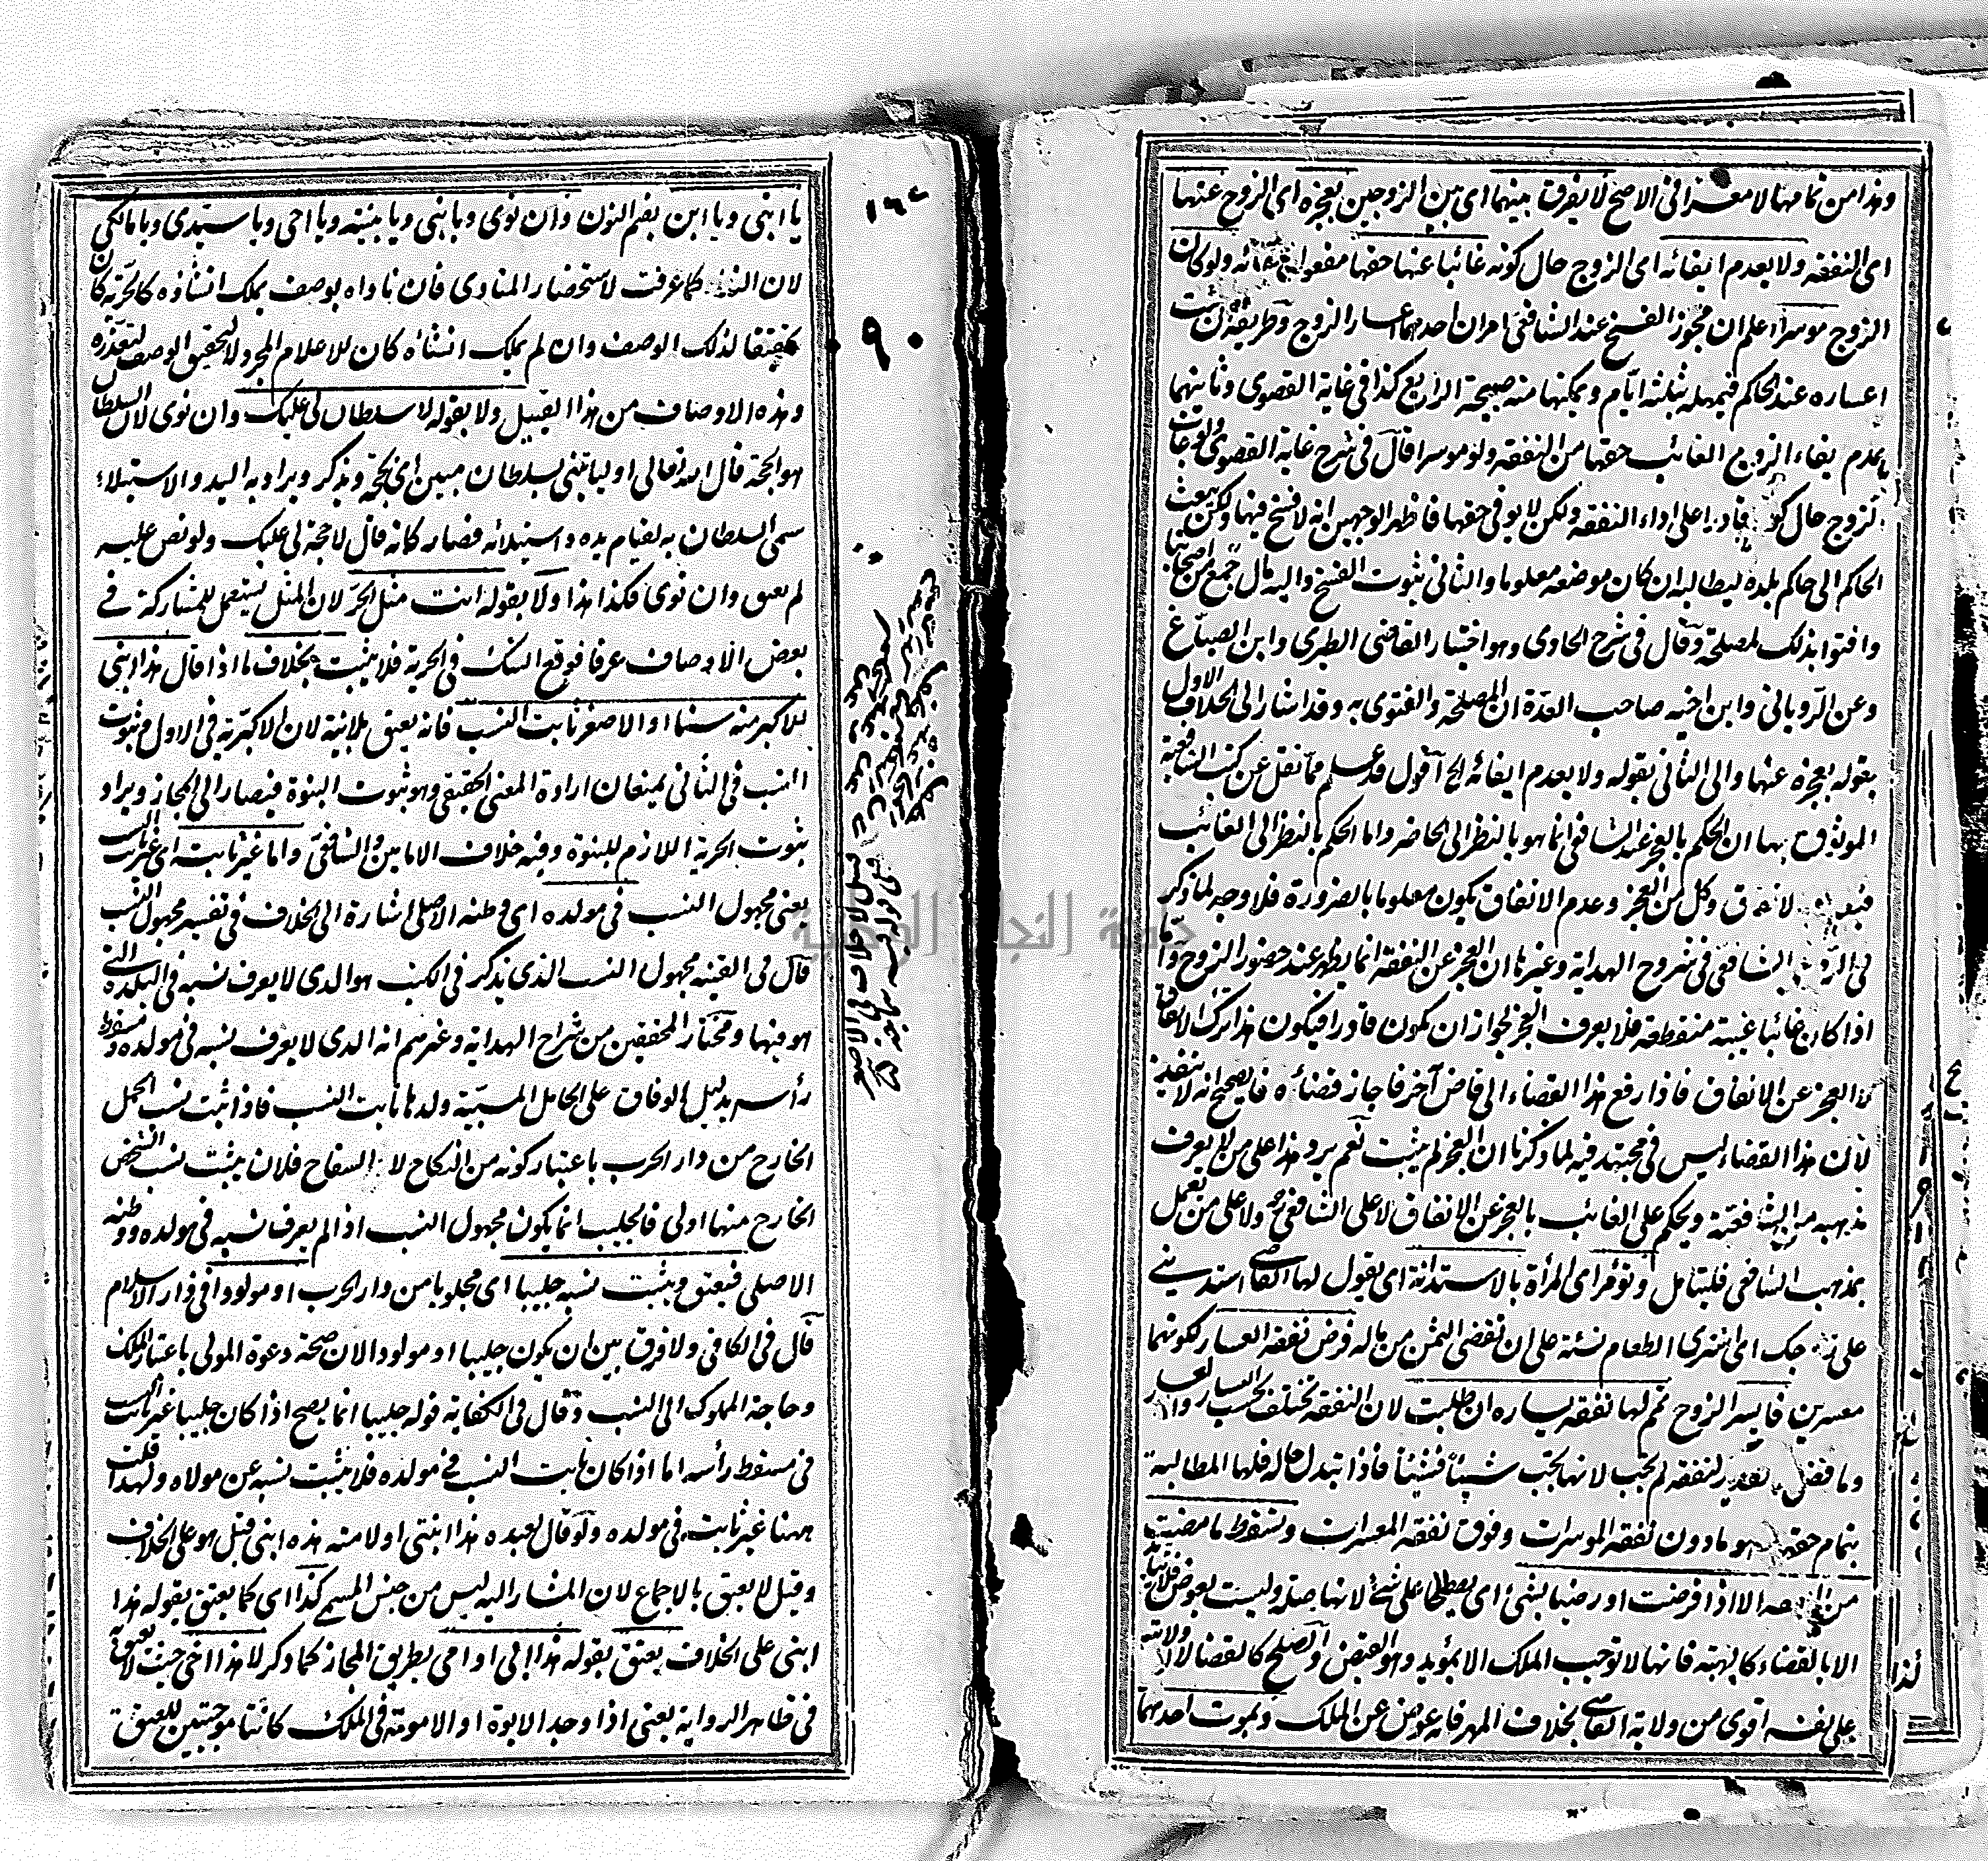 وهذا من تمامها لا معسرا في الاصح لا يفرق بينهما اى بين الزوجين بعجزه اى الزوج عنها
اى النفقة ولا بعدم ايفائه اى الزوج حال كونه غائبا عنها حقها مفعول ايفائه ولو كان
الزوج موسرا اعلم ان مجوز الفسخ عند الشافعي امران احدهما اعسار الزوج وطريقه ان يثبت
اعساره عند الحاكم فيمهله ثلثة ايام ويمكنها منه صبيحة الرابع كذا في غاية القصوى وثانيهما
عدم ايفاء الزوج الغائب حقها من النفقة ولو موسرا قال في شرح غاية القصوى
الزوج حال قادرا على اداء النفقة ولكن لا يوفي حقها فاظهر الوجهين انه لا فسخ فيها ولكن يبعث
الحاكم الى حاكم بلده ليطالبه ان كان موضعه معلوما والثاني ثبوت الفسخ واليه مال جمع من اصحابنا
وافتوا بذلك لمصلحة وقال في شرح الحاوى وهو اختيار القاضي الطبرى وابن الصباغ
وعن الروياني وابن اخيه صاحب العدة ان المصلحة والفتوى به وقد اشار الى الخلاف الاول
بقوله بعجزه عنها والى الثاني بقوله ولا بعدم ايفائه الخ اقول قد علم مما نقل عن كتب الشافعية
الموثوق بها ان الحكم بالعجز عند الشافعي انما هو بالنظر الى الحاضر واما الحكم بالنظر الى الغائب
لانفاق وكل من العجز وعدم الانفاق يكون معلوما بالضرورة فلا وجه لما ذكر
في الرد الشافعي في شروح الهداية وغيرها ان العجز عن النفقة انما يظهر عند حضور الزوج واما
اذا كان غائبا غيبة منقطعة فلا يعرف العجز لجواز ان يكون قادرا فيكون هذا ترك الانفاق
لا العجز عن الانفاق فاذا رفع هذا القضاء الى قاض آخر فاجاز قضاءه فالصحيح انه لا ينفذ
لان هذا القضاء ليس في مجتهد فيه لما ذكرنا ان العجز لم يثبت نعم يرد هذا على من لا يعرف
مذهبه من الشافعية ويحكم على الغائب بالعجز عن الانفاق لا على الشافعي ولا على من يعمل
بمذهب الشافعي فليتامل وتؤمر اى المرأة بالاستدانة اى يقول لها القاضى استديني
على زوجك اى اشترى الطعام نسئة على ان تقضى الثمن من ماله فرض نفقة العسار لكونهما
معسرين فايسر الزوج تمم لها نفقة يساره ان طلبت لان النفقة تختلف بحسب اليسار
وما فضى تقدير لنفقة لم تجب لانها تجب شيئا فشيئا فاذا تبدل حاله فلها المطالبة
بتمام حقها وهو ما دون نفقة الموسرات وفوق نفقة المعسرات وتسقط ما مضت
من الا اذا فرضت او رضيا بشئ اى يصطلحا على شئ لانها صلة وليست بعوض
الا بالقضاء كالهبة فانها لا توجب الملك الا بمؤيد وهو القبض والصلح كالقضا لان ولايته
على نفسه اقوى من ولاية القاضى بخلاف المهر فانه عوض عن الملك وبموت احدهما
١٦٢
٩٠
يا ابنى ويا ابن بضم النون وان نوى ويا بنى ويا بنية ويا اخى ويا سيدى ويا مالكى
لان النداء كما عرفت لاستحضار المنادى فان ناداه بوصف يملك انشاءه كالحرية كان
تحقيقا لذلك الوصف وان لم يملك انشاءه كان للاعلام المجرد لا لتحقيق الوصف لتعذره
وهذه الاوصاف من هذا القبيل ولا بقوله لا سلطان لى عليك وان نوى لان السلطان
هو الحجة قال الله تعالى اوليأتيني بسلطان مبين اى بحجة ويذكر ويراد به اليد والاستيلاء
سمى السلطان به لقيام يده واستيلائه فصار كانه قال لا حجة لى عليك ولو نص عليه
لم يعتق وان نوى فكذا هذا ولا بقوله انت مثل الحر لان المثل يستعمل للمشاركة في
بعض الاوصاف عرفا فوقع الشك في الحرية فلا يثبت بخلاف ما اذا قال هذا ابنى
للاكبر منه سنا او الاصغر ثابت النسب فانه يعتق بلا نية لان الاكبرية في الاول وثبوت
النسب في الثاني يمنعان ارادة المعنى الحقيقى وهو ثبوت البنوة فيصار الى المجاز ويراد
ثبوت الحرية اللازم للبنوة وفيه خلاف الامامين والشافعي واما غير ثابت اى غير ثابت النسب
يعنى مجهول النسب في مولده اى وطنه الاصلى اشارة الى الخلاف في تفسير مجهول النسب
قال في القنية مجهول النسب الذى يذكر في الكتب هو الذى لا يعرف نسبه في البلدة التى
هو فيها ومختار المحققين من شراح الهداية وغيرهم انه الذى لا يعرف نسبه في مولده ومسقط
رأسه بدليل الوفاق على الحامل المسبية ولدها ثابت النسب فاذا ثبت نسب الحمل
الخارج من دار الحرب باعتبار كونه من النكاح لا السفاح فلان يثبت نسب الشخص
الخارج منها اولى فالجليب انما يكون مجهول النسب اذا لم يعرف نسبه في مولده ووطنه
الاصلى فيعتق ويثبت نسبه جليبا اى مجلوبا من دار الحرب او مولودا في دار الاسلام
قال في الكافى ولا فرق بين ان يكون جليبا او مولودا لان صحة دعوة المولى باعتبار الملك
وحاجة المملوك الى النسب وقال في الكفاية قوله جليبا انما يصح اذا كان جليبا غير ثابت النسب
في مسقط رأسه اما اذا كان ثابت النسب في مولده فلا يثبت نسبه عن مولاه ولهذا قلت
ههنا غير ثابت في مولده ولو قال لعبده هذا ابنتى او لامته هذه ابنى قيل هو على الخلاف
وقيل لا يعتق بالاجماع لان المشار اليه ليس من جنس المسمى كذا اى كما يعتق بقوله هذا
ابنى على الخلاف يعتق بقوله هذا ابى او امى بطريق المجاز كما ذكر لا هذا اخى حيث لا يعتق
في ظاهر الرواية يعنى اذا وجد الابوة او الامومة في الملك كانتا موجبتين للعتق
جامعة النجاح الوطنية